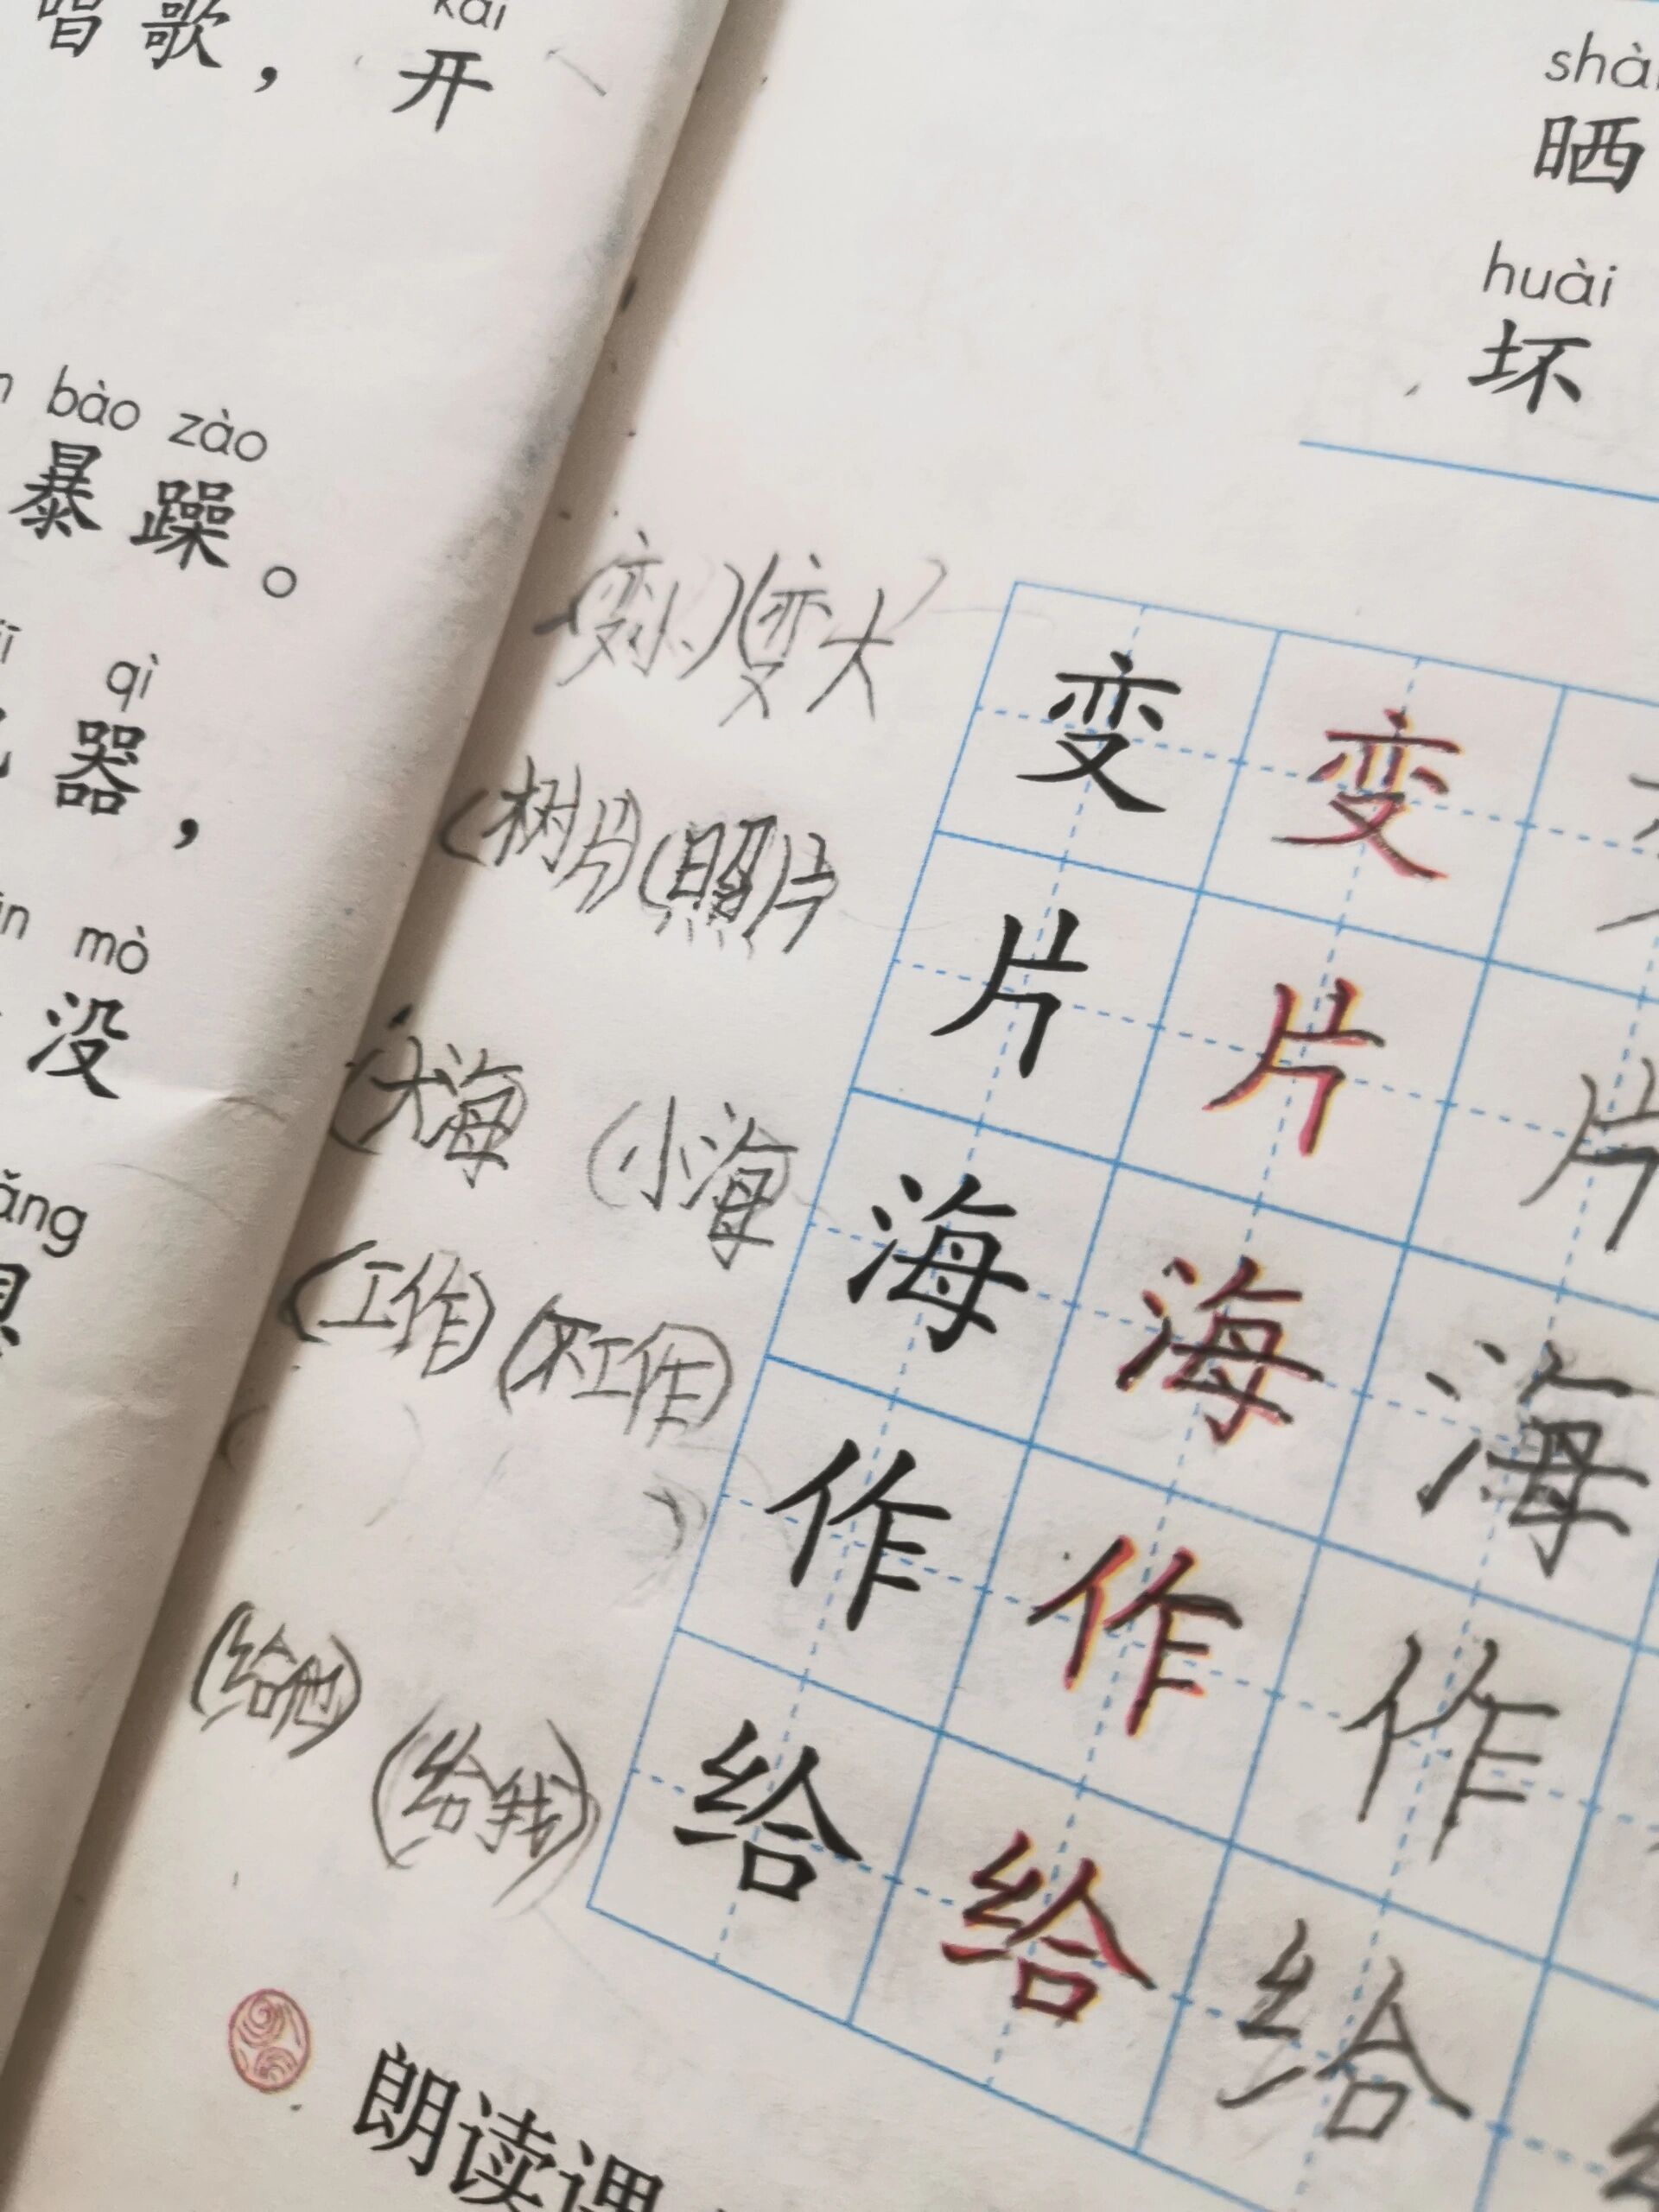 唱歌，开
bào zào
暴躁。
qì
器，
mò
没
晒
huài
坏
(变小)(变大)
变变
(树片)(照片
片片片
(大海)(小海)
海海海
(工作)(不工作)
作作作
(给我)
给给给
朗读课